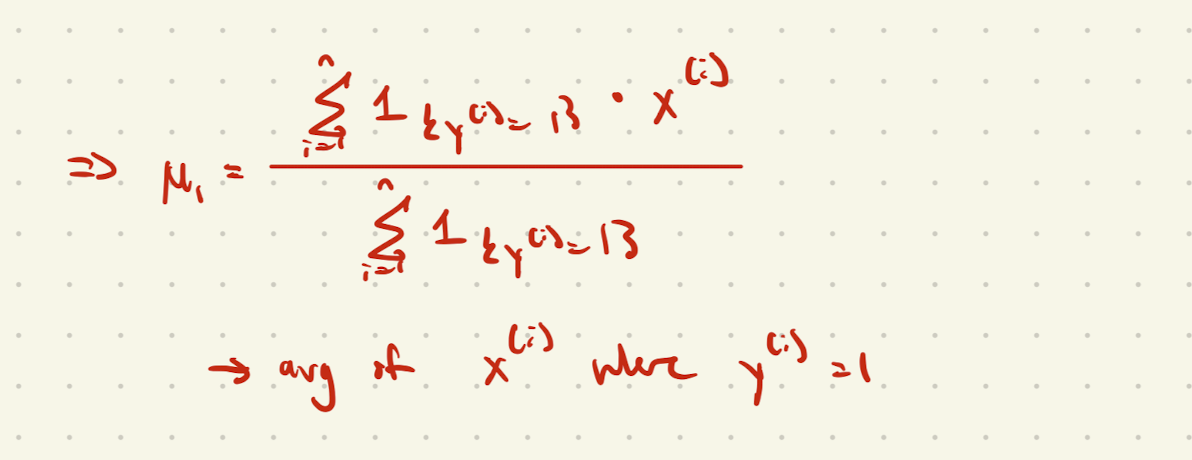 ⇒ μ₁ = (∑_{i=1}^{n} 1_{{y^{(i)} = 1}} · x^{(i)}) / (∑_{i=1}^{n} 1_{{y^{(i)} = 1}})
→ avg of x^{(i)} where y^{(i)} = 1